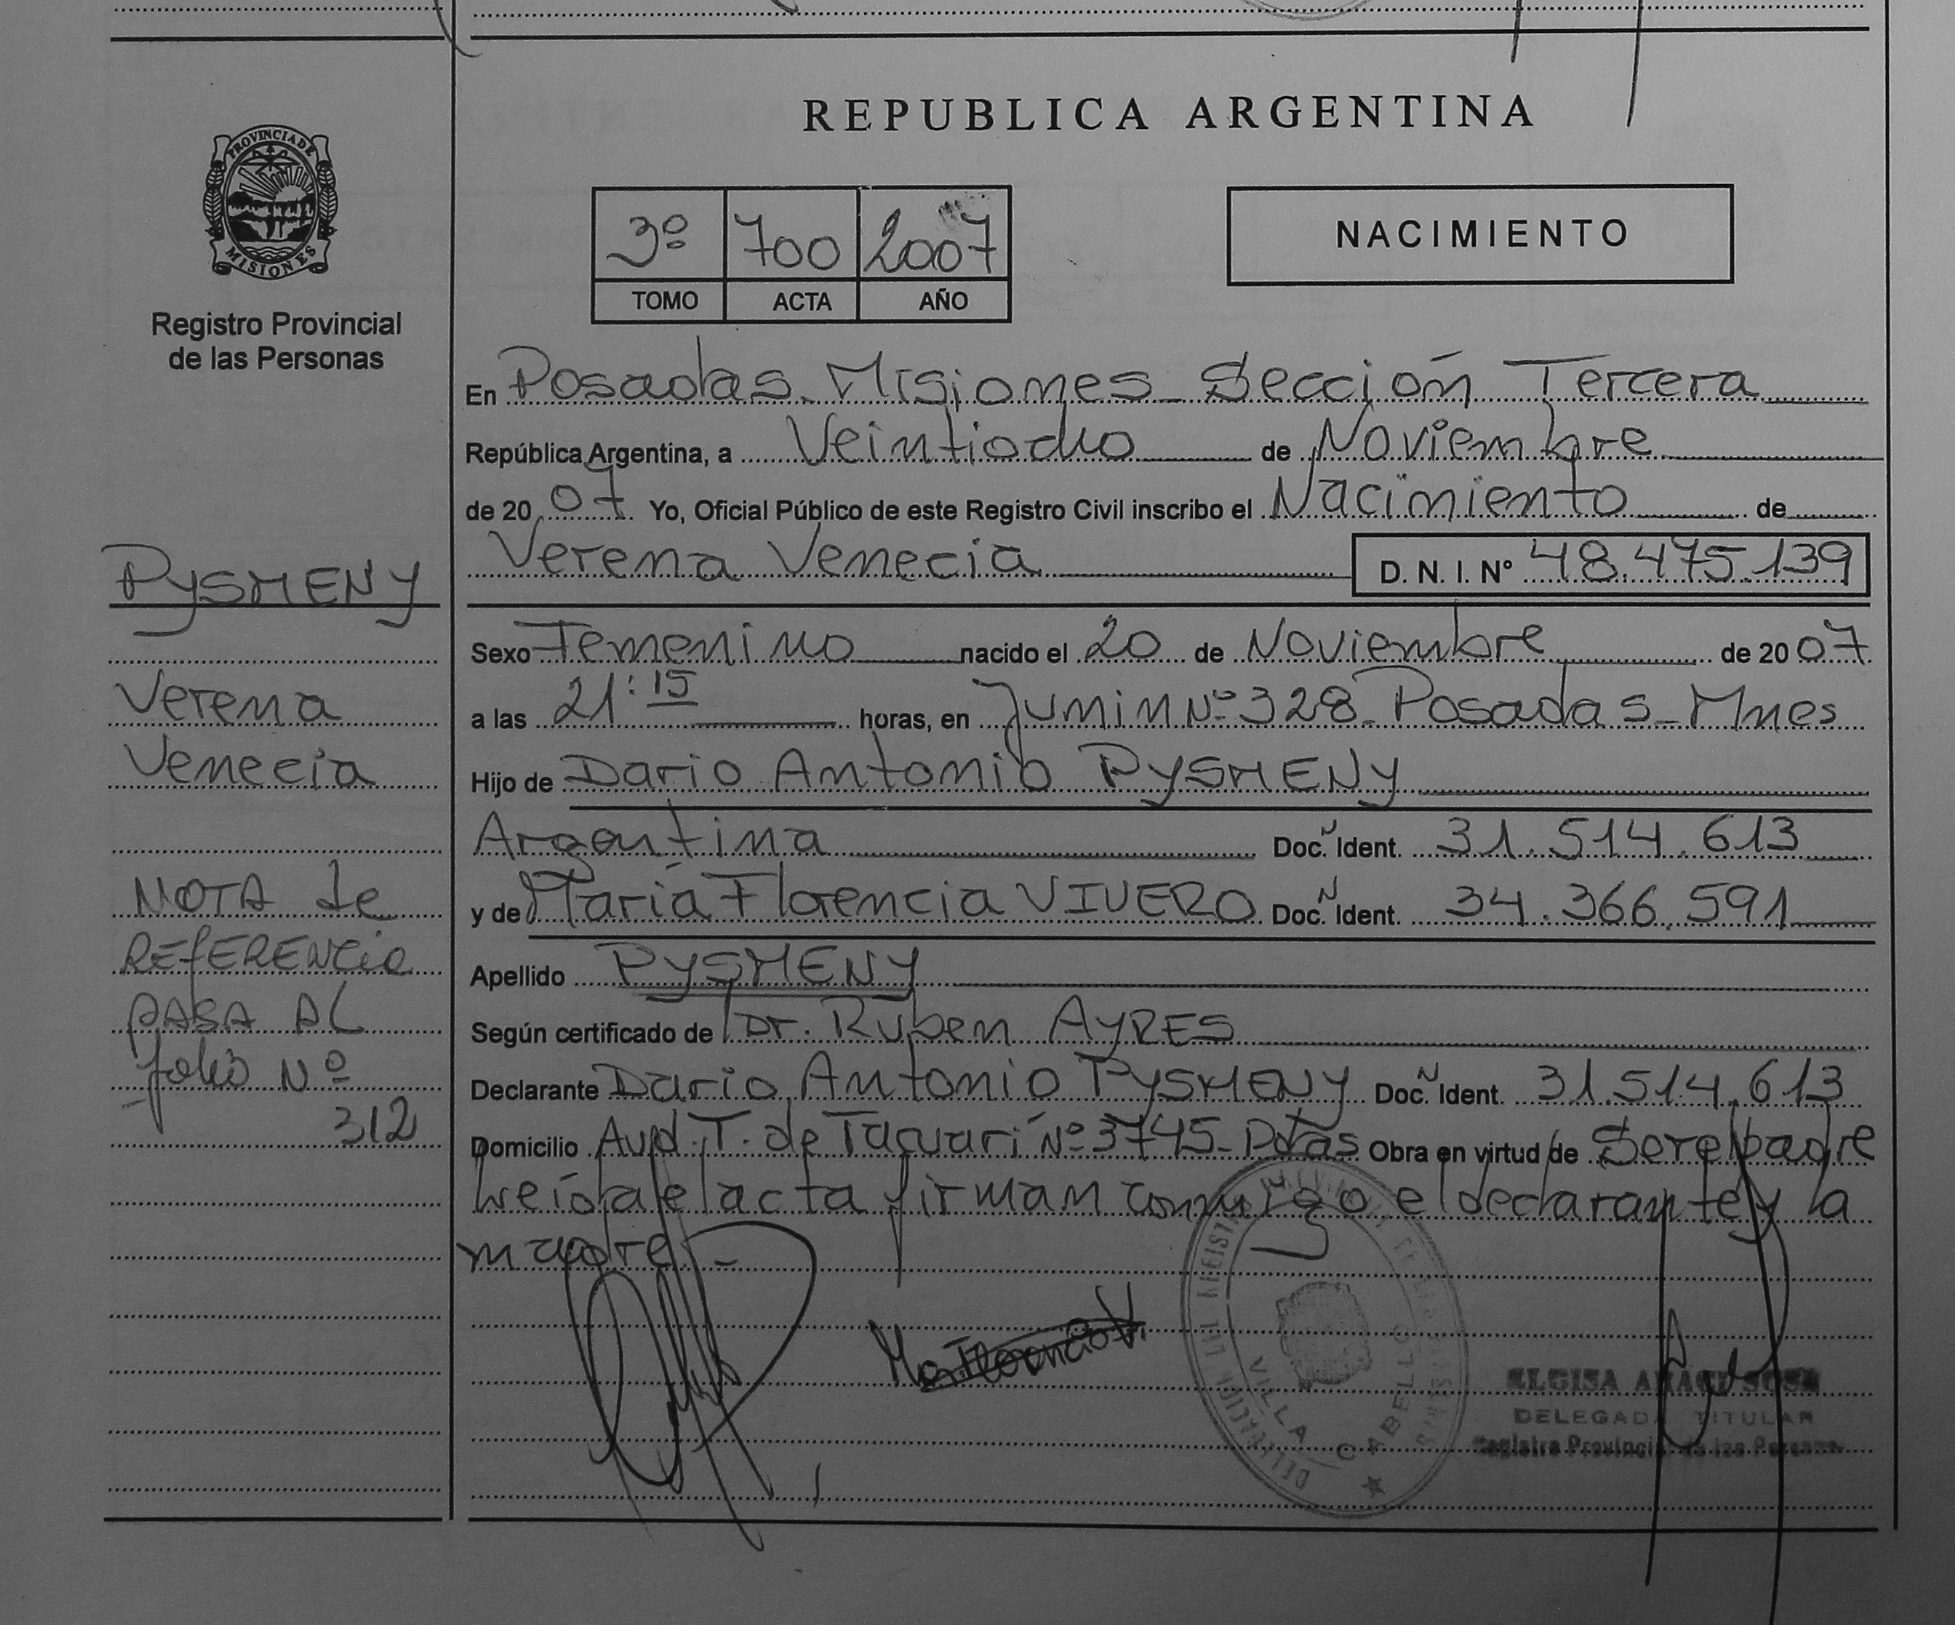 PROVINCIA DE
MISIONES
Registro Provincial
de las Personas
PYSMENY
Verena
Venecia
NOTA de
REFERENCIA
PASA AL
folio Nº
312
REPUBLICA ARGENTINA
3º 700 2007
TOMO ACTA AÑO
NACIMIENTO
En Posadas - Misiones - Sección Tercera
República Argentina, a Veintiocho de Noviembre
de 20 07 Yo, Oficial Público de este Registro Civil inscribo el Nacimiento de
Verena Venecia D. N. I. Nº 48.475.139
Sexo Femenino nacido el 20 de Noviembre de 20 07
a las 21:15 horas, en Junin Nº 328 - Posadas - Mnes
Hijo de Dario Antonio PYSMENY
Argentina Doc. Ident. 31.514.613
y de María Florencia VIVERO Doc. Ident. 34.366.591
Apellido PYSMENY
Según certificado de Dr. Ruben AYRES
Declarante Dario Antonio PYSMENY Doc. Ident. 31.514.613
Domicilio Avd. T. de Tacuarí Nº 3745 - Pdas Obra en virtud de Ser el padre
Leída el acta firman conmigo el declarante y la
madre. -
Ma. Florencia V.
VILLA CABELLO
DELEGADA TITULAR
Registro Provincial de las Personas